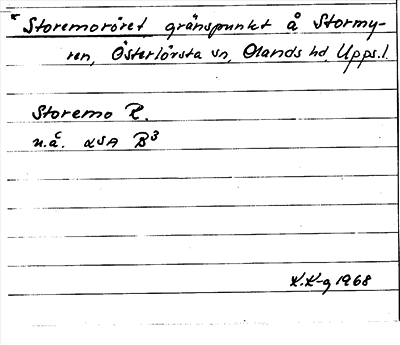 Storemoröret gränspunkt å Stormy-
ren, Österlövsta sn, Olands hd, Upps.l.
Storemo R.
u.å. LSA B3
K.K-g 1968